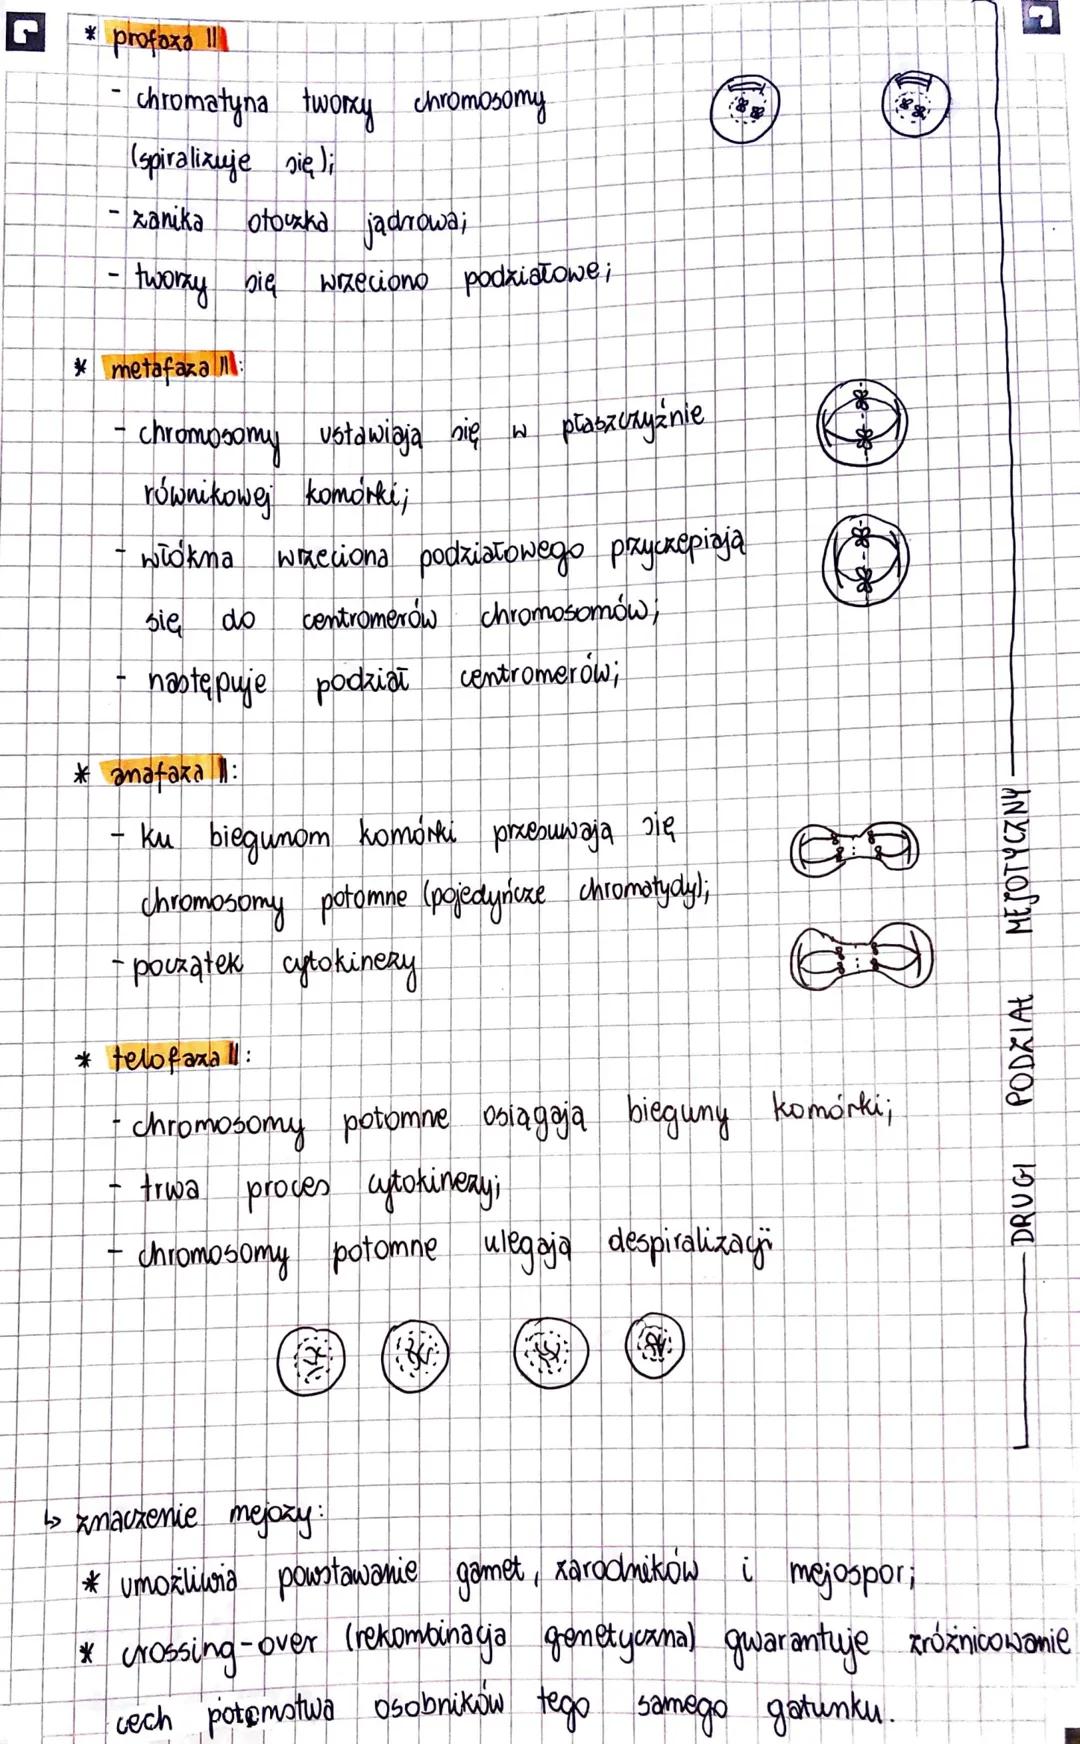 * profaza II
- chromatyna tworzy chromosomy
(spiralizuje się);
- zanika otoczka jądrowa;
- tworzy się wrzeciono podziałowe;
* metafaza II:
- chromosomy ustawiają się w płaszczyźnie
równikowej komórki;
- włókna wrzeciona podziałowego przyczepiają
się do centromerów chromosomów;
- następuje podział centromerów;
* anafaza II:
- ku biegunom komórki przesuwają się
chromosomy potomne (pojedyńcze chromatydy);
- początek cytokinezy
* telofaza II:
- chromosomy potomne osiągają bieguny komórki;
- trwa proces cytokinezy;
- chromosomy potomne ulegają despiralizacji
DRUGI PODZIAŁ MEJOTYCZNY
↳ znaczenie mejozy:
* umożliwia powstawanie gamet, zarodników i mejospor;
* crossing-over (rekombinacja genetyczna) gwarantuje zróżnicowanie
cech potomstwa osobników tego samego gatunku.